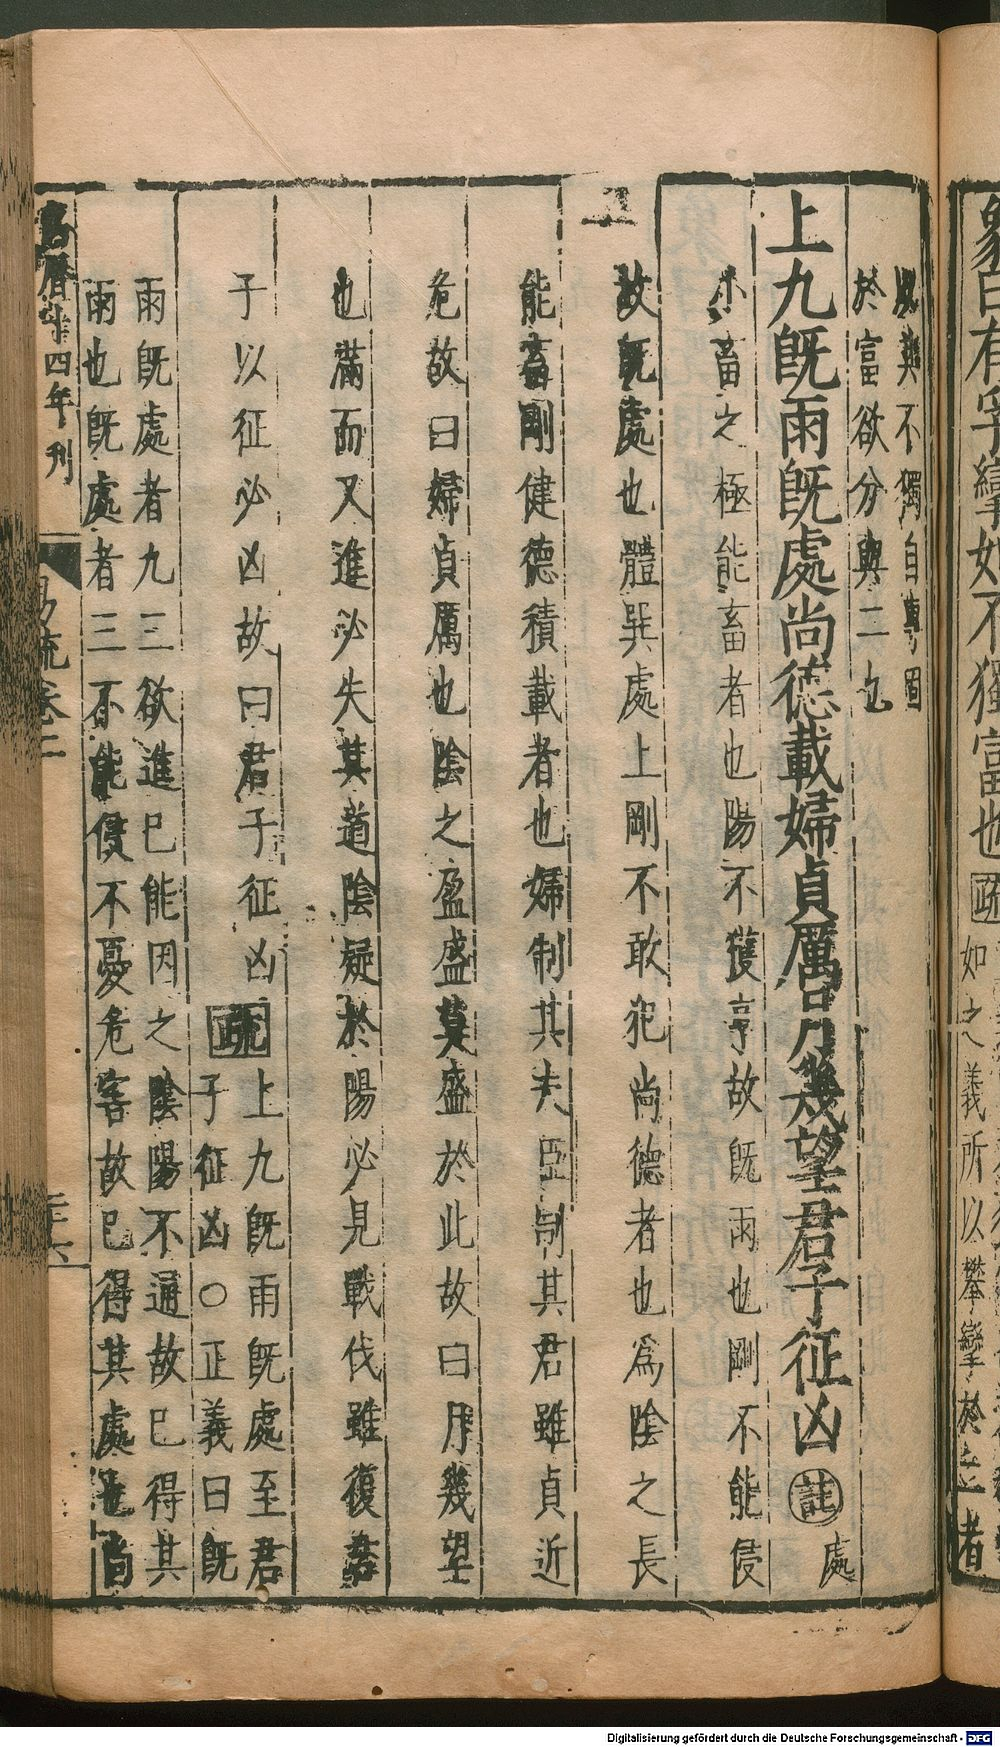 象曰有孚攣如不獨富也疏
如之義所以攀攣於二者
既與不獨自專固
於富欲分與二也
上九既雨既處尚德載婦貞厲月幾望君子征凶註處
小畜之極能畜者也陽不獲亨故既雨也剛不能侵
故既處也體巽處上剛不敢犯尚德者也為陰之長
能畜剛健德積載者也婦制其夫臣制其君雖貞近
危故曰婦貞厲也陰之盈盛莫盛於此故曰月幾望
也滿而又進必失其道陰疑於陽必見戰伐雖復君
子以征必凶故曰君子征凶疏
上九既雨既處至君
子征凶○正義曰既
雨既處者九三欲進已能因之陰陽不通故已得其
雨也既處者三不能侵不憂危害故已得其處也尚
萬曆十四年刊
易疏卷二
三十六
Digitalisierung gefördert durch die Deutsche Forschungsgemeinschaft - DFG